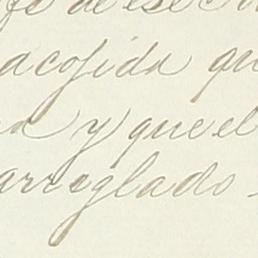 de ese
acojida que
y que el
arreglado